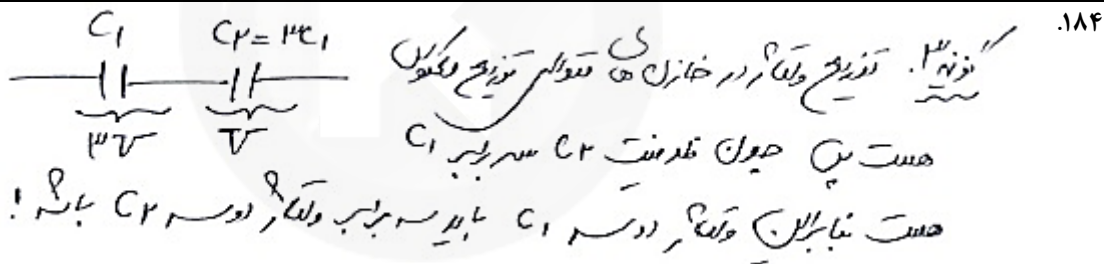 .۱۸۴
C۱ C۲ = ۳C۱
گزینه ۳. توزیع ولتاژ در خازن های متوالی توزیع معکوس
۳V V
هست پس چون ظرفیت C۲ سه برابر C۱
هست بنابراین ولتاژ دو سر C۱ باید سه برابر ولتاژ دو سر C۲ باشه!